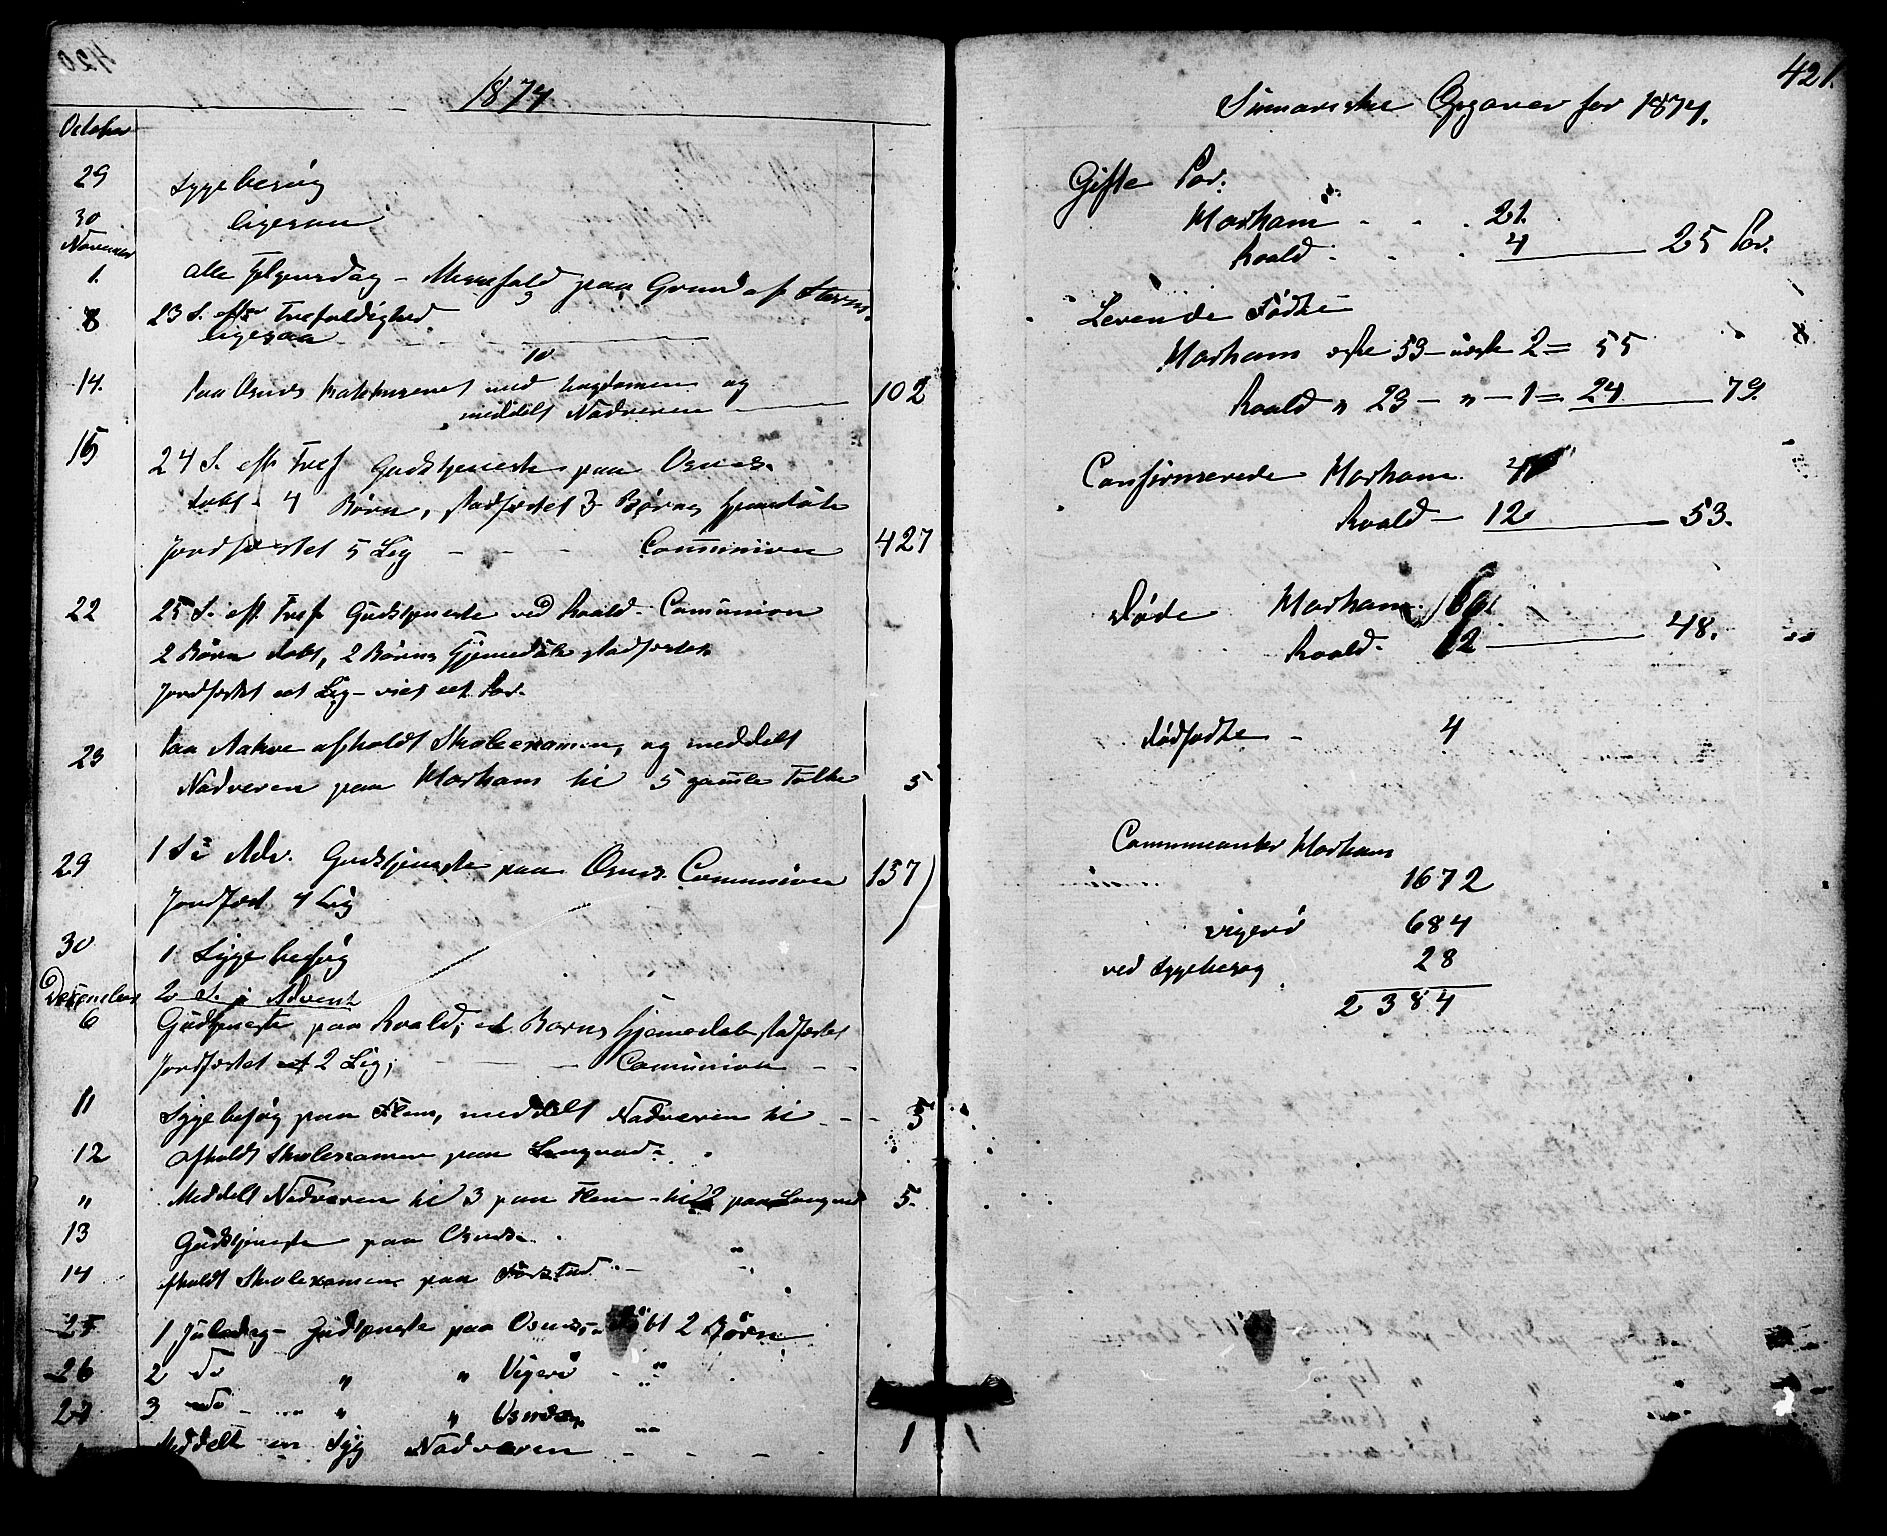 1874
October
29 Sygebesög
30 ligesaa
November
1. alle Helgensdag – Messefald paa Grund af Storm.
8 23 S. eftr Trefoldighed
ligesaa
10
14. paa Osnes med og
meddelt Nadveren 102
15 24 S. eft Tref Gudstjeneste paa Osnes.
döbt 4 Börn, stadfæstet 3 Börns Hjemedaab
Jordfæstet 5 Lig – – – Communion 427
22 25 S. eft Tref Gudstjeneste ved Roald – Comunion
2 Börn döbt, 2 Börns Hjemedaab stadfæstet
Jordfæstet et Lig – viet et Par.
23 paa Aakre afholdt Skoleexamen, og meddelt
Nadveren paa Harham til 5 gamle Folke 5
29 1 S i Adv. Gudstjeneste paa Osnes. Communion 157)
Jordfæst 4 Lig
30 1 Sygebesög
December 2 S. i Advent
6 Gudstjeneste paa Roald; et Barns Hjemedaab stadfæstet
Jordfæstet et 2 Lig; – – Comunion – –
11 Sygebesög paa Flem, meddelt Nadveren til – – 5
12 afholdt Skolexamen paa Longvad
" Meddelt Nadveren til 3 paa Flem – til 2 paa Longvad 5.
13 Gudstjeneste paa Osnes.
14 afholdt Skolexamen paa
25 1 Juledag – Gudstjeneste paa Osnes, – Döbt 2 Börn
26 2 Do " " Vigerö
27 3 Do – " " Osnes
Meddelt en Syg Nadveren – – – 1
420
421.
Sumariske Opgaver for 1874.
Gifte Par.
Harham – . . 21.
Roald . . . 4 25 Par.
Levende Födte
Harham ægte 53 – uægte 2 = 55
Roald " 23 – " – 1 = 24 79.
Confirmerede Harham 41
Roald – 12 53.
Döde Harham. 36
Roald – 12 48.
Dödfödte – 4
Communicanter Harham
1672
Vigerö 684
ved Sygebesøg 28
2384